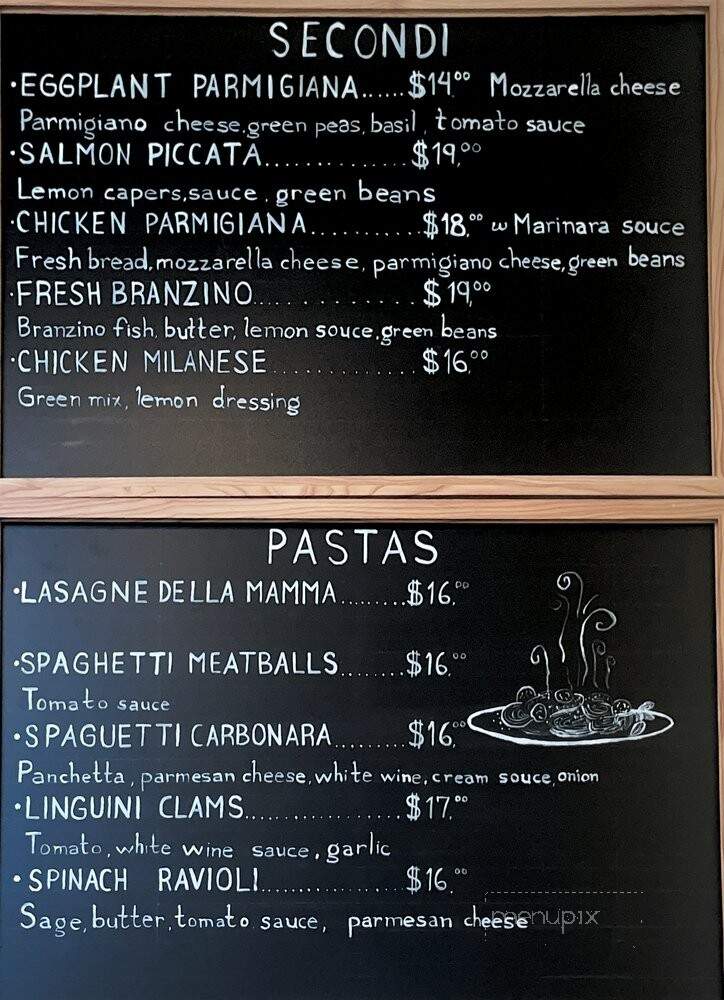 SECONDI
·EGGPLANT PARMIGIANA......$14.00 Mozzarella cheese
Parmigiano cheese,green peas, basil, tomato sauce
·SALMON PICCATA..............$19,00
Lemon capers,sauce, green beans
·CHICKEN PARMIGIANA...........$18.00 w Marinara souce
Fresh bread,mozzarella cheese, parmigiano cheese,green beans
·FRESH BRANZINO.............$19,00
Branzino fish, butter, lemon souce,green beans
·CHICKEN MILANESE..............$16.00
Green mix, lemon dressing
PASTAS
·LASAGNE DELLA MAMMA.........$16.00
·SPAGHETTI MEATBALLS........$16.00
Tomato sauce
·SPAGUETTI CARBONARA.........$16.00
Panchetta, parmesan cheese,white wine,cream souce,onion
·LINGUINI CLAMS.................$17.00
Tomato, white wine sauce, garlic
·SPINACH RAVIOLI................$16.00
Sage, butter, tomato sauce, parmesan cheese
menupix